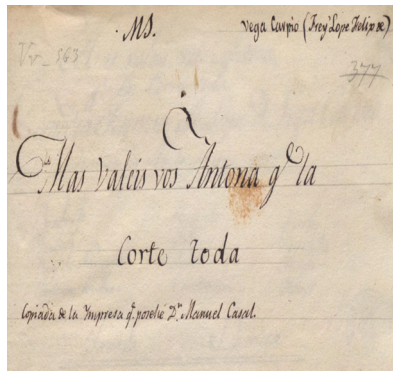 MS.
Vega Carpio (Frey Lope Felix de)
Vv-563
377
Mas valeis vos Antona q.e la
Corte toda
Copiada de la Impresa q.e posehé D.n Manuel Casal.